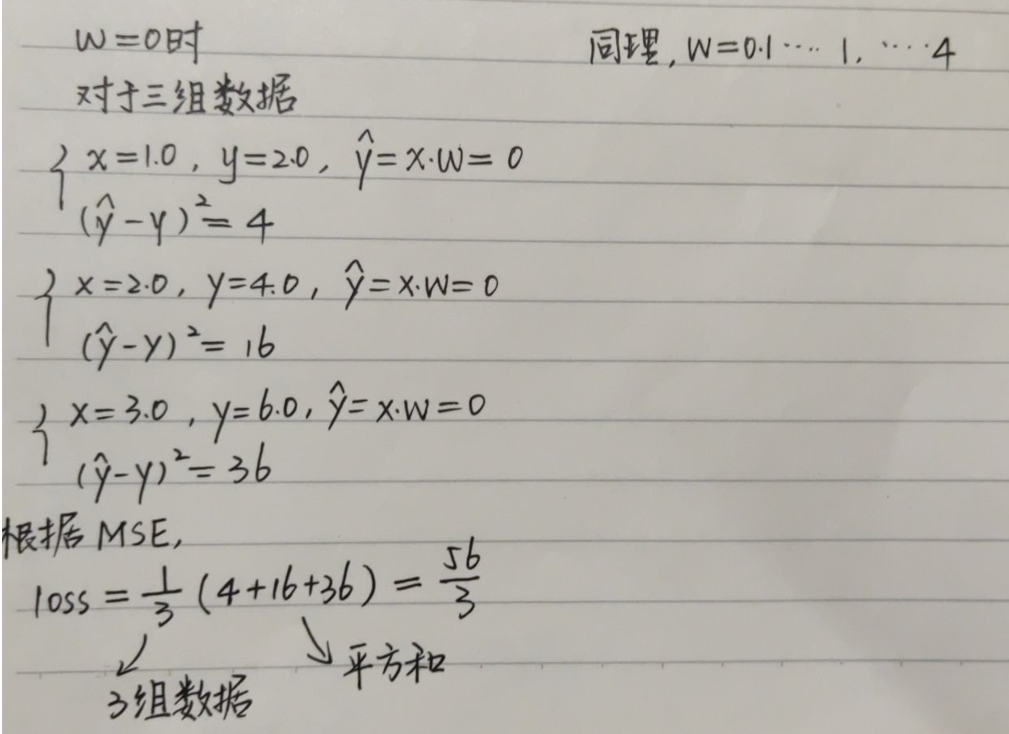 w=0时
同理, w=0.1 ···· 1, ···· 4
对于三组数据
x=1.0, y=2.0, ŷ=x·w=0
(ŷ-y)²=4
x=2.0, y=4.0, ŷ=x·w=0
(ŷ-y)²=16
x=3.0, y=6.0, ŷ=x·w=0
(ŷ-y)²=36
根据MSE,
loss = 1/3 (4+16+36) = 56/3
平方和
3组数据